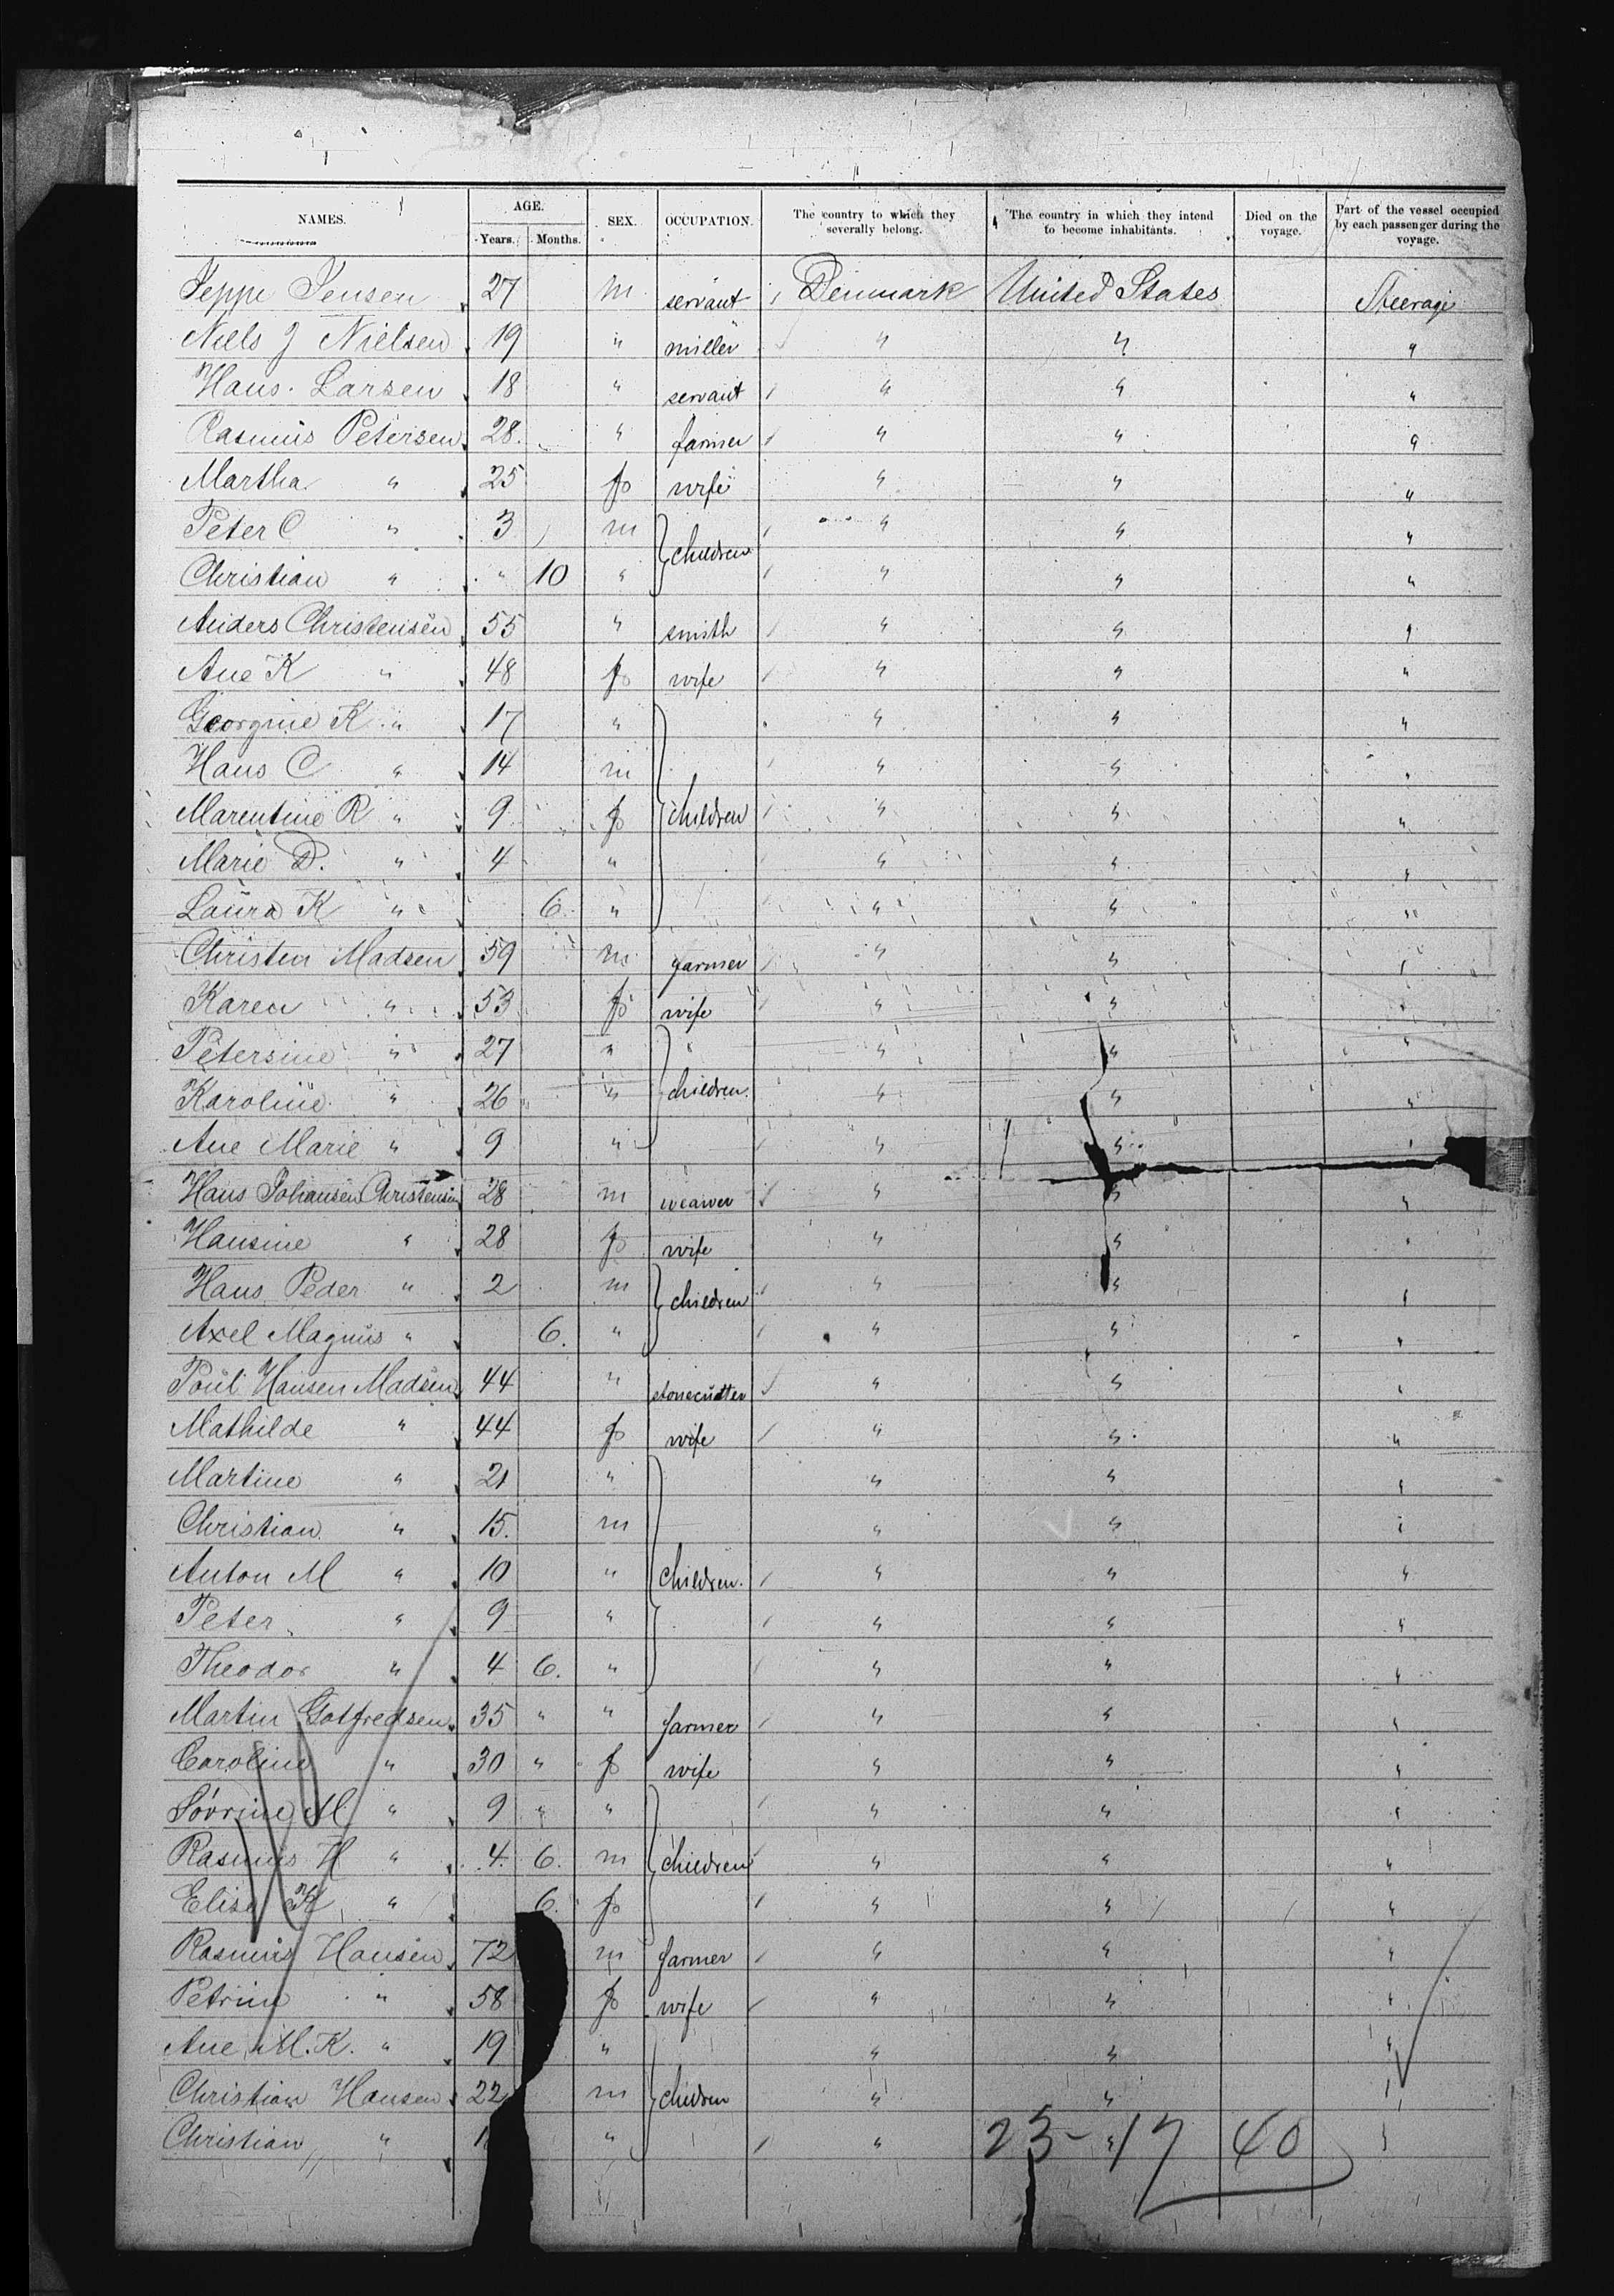 NAMES. AGE. SEX. OCCUPATION. The country to which they severally belong. The country in which they intend to become inhabitants. Died on the voyage. Part of the vessel occupied by each passenger during the voyage.
Years. Months.
Jeppe Jensen 27 m servant Denmark United States Steerage
Niels J Nielsen 19 " miller " " "
Hans Larsen 18 " servant " " "
Rasmus Petersen 28 " farmer " " "
Martha " 25 f wife " " "
Peter C " 3 m children " " "
Christian " " 10 " " " "
Anders Christensen 55 " smith " " "
Ane K " 48 f wife " " "
Georgine K " 17 " " " "
Hans C " 14 m " " "
Marentine R " 9 f children " " "
Marie D. " 4 " " " "
Laura K " 6 " " " "
Christen Madsen 59 m farmer " " "
Karen " 53 f wife " " "
Petersine " 27 " " " " "
Karoline " 26 " children " " "
Ane Marie " 9 " " " "
Hans Johansen Christensen 28 m weawer " " "
Hansine " 28 f wife " " "
Hans Peder " 2 m children " " "
Axel Magnus " 6. " " " "
Poul Hansen Madsen 44 " stonecutter " " "
Mathilde " 44 f wife " " "
Martine " 21 " " " "
Christian " 15. m " " "
Anton M " 10 " children. " " "
Peter " 9 " " " "
Theodor " 4 6. " " " "
Martin Gotfredsen 35 " " farmer " " "
Caroline " 30 " f wife " " "
Sövrine M " 9 " " " " "
Rasmus H " 4 6. m children " " "
Elise K " 6. f " " "
Rasmus Hansen 72 m farmer " " "
Petrine " 58 f wife " " "
Ane M. K. " 19 " " " "
Christian Hansen 22 m children " " "
Christian " " " "
23 - 17 40